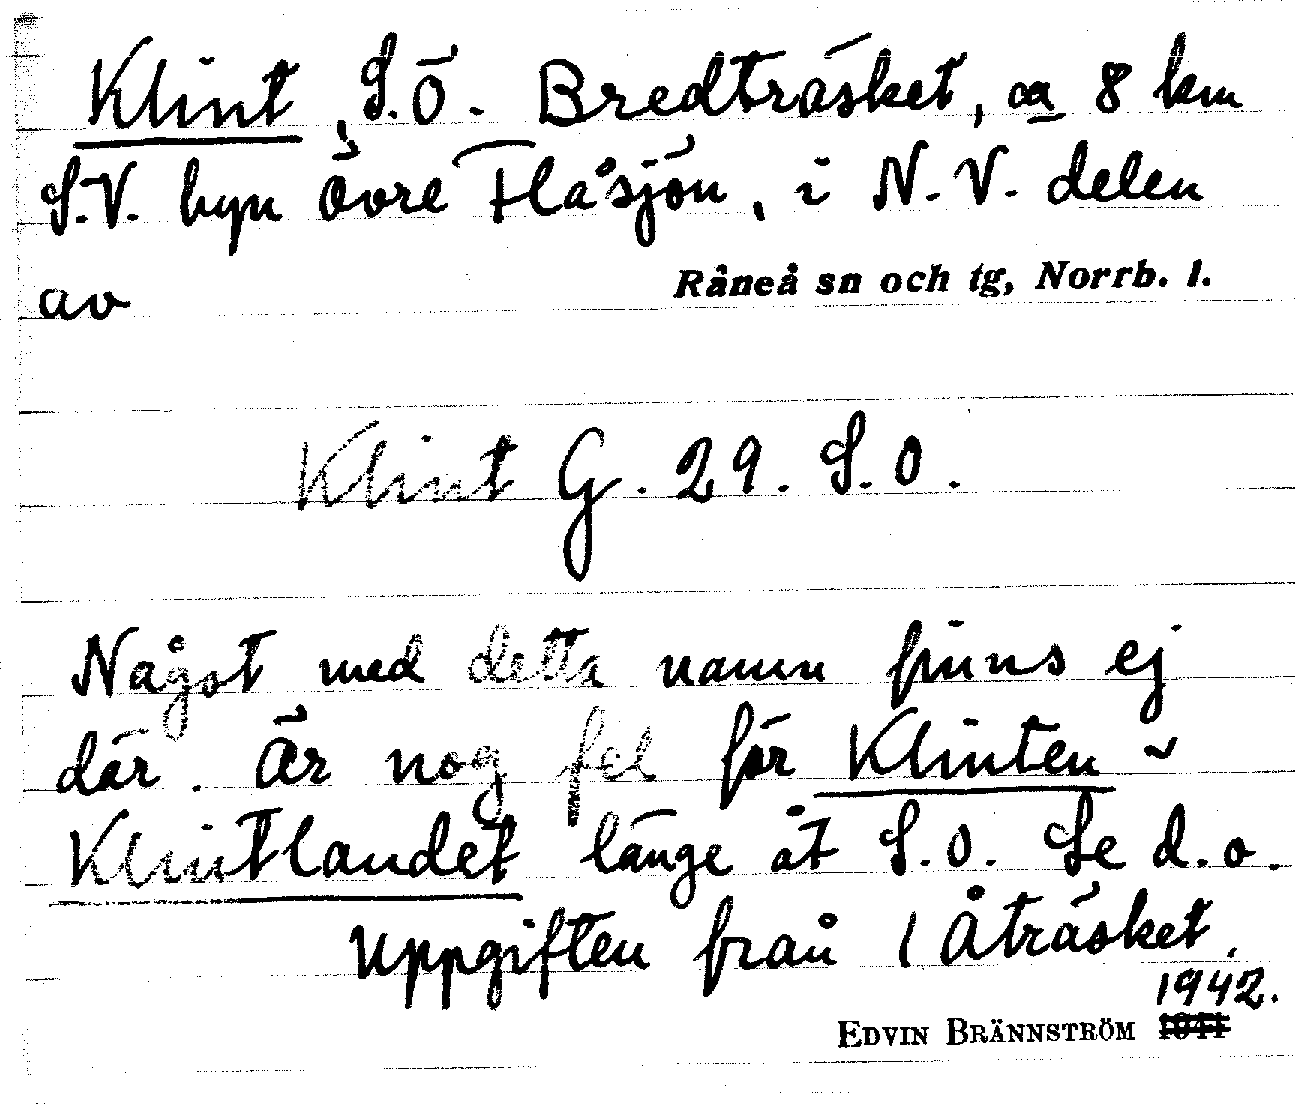 Klint, S.Ö. Bredträsket, ca 8 km
S.V. byn Övre Flåsjön, i N.V. delen
av Råneå sn och tg, Norrb. l.
Klint G. 29. S.O.
Något med detta namn finns ej
där. Är nog fel för Klinten ~
Klintlandet länge åt S.O. Se d.o.
Uppgiften från 1 Åträsket.
1942.
EDVIN BRÄNNSTRÖM 1941